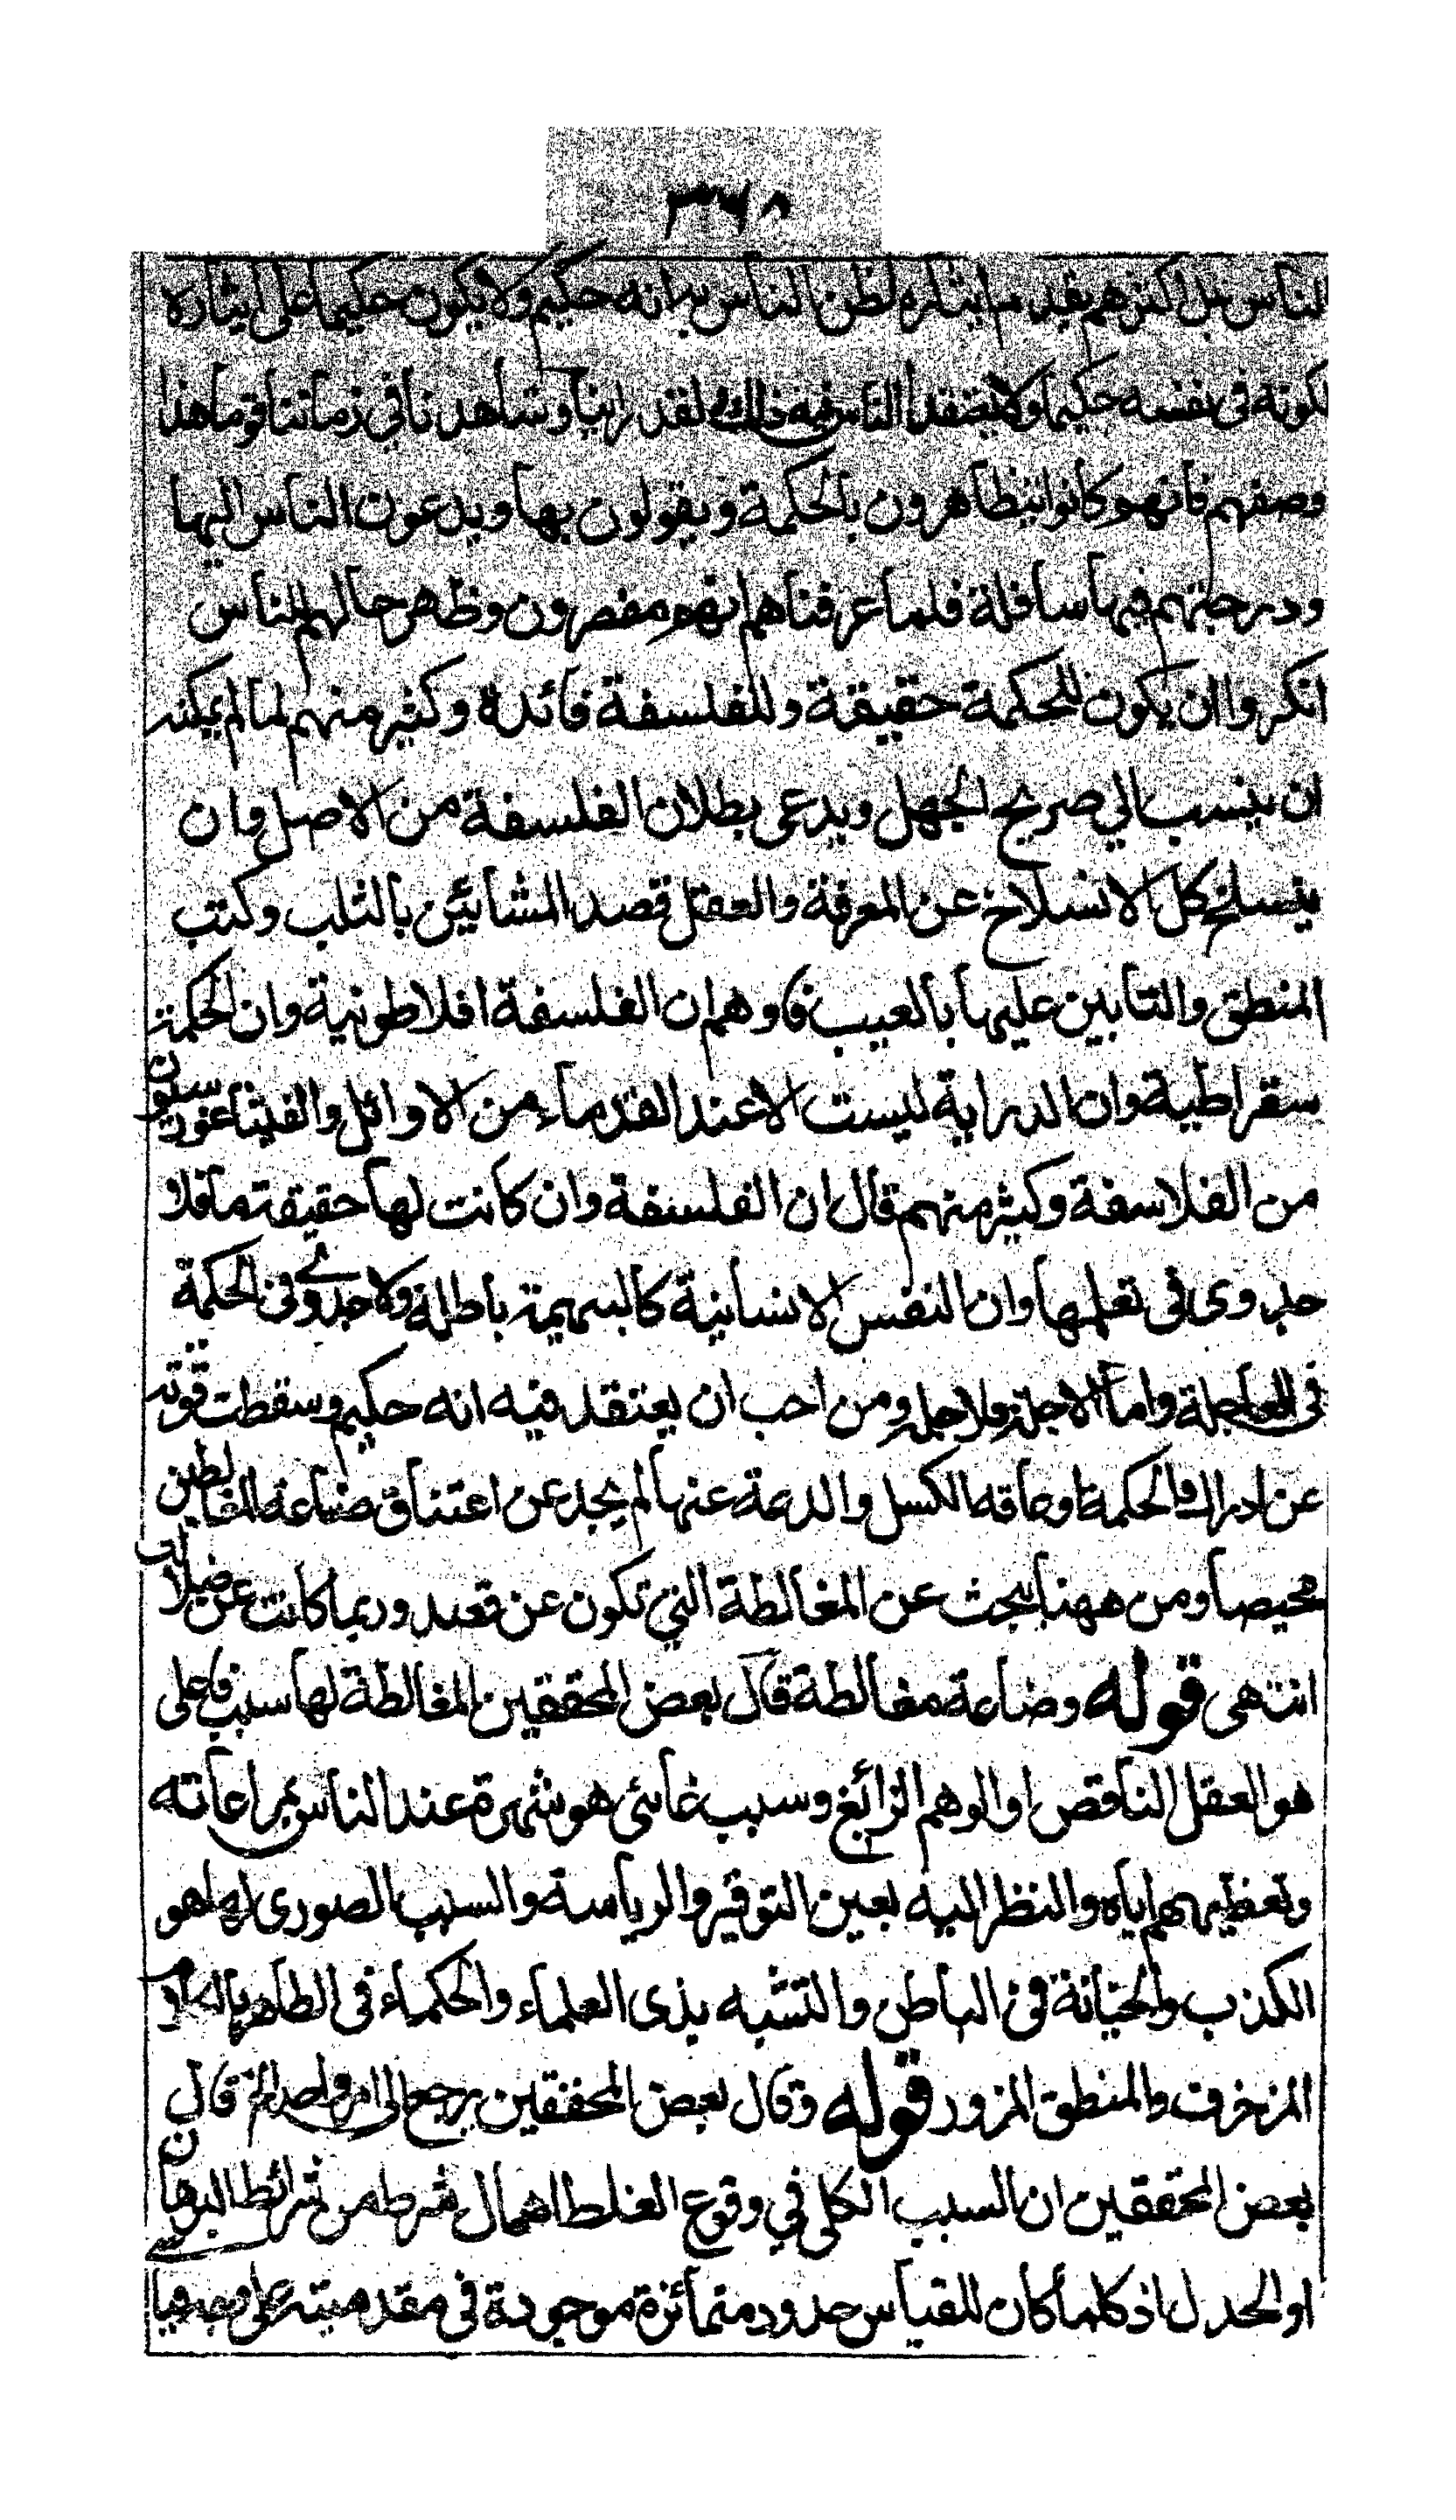 ٣٦٨
الناس بل اكثرهم يقدم ايثاره لظن الناس به انه حكيم ولا يكون حكيما على ايثاره
لكونه في نفسه حكيما ولا يعتقد الناس فيه ذلك لقد راينا وشاهدنا في زماننا قوما هذا
وصفهم فانهم كانوا يتظاهرون بالحكمة ويقولون بها ويدعون الناس اليها
ودرجتهم فيها سافلة فلما عرفناهم انهم مقصرون وظهر حالهم للناس
انكروا ان يكون للحكمة حقيقة وللفلسفة فائدة وكثير منهم لما لم يمكنه
ان ينسب الي صريح الجهل ويدعى بطلان الفلسفة من الاصل وان
ينسلخ كل الانسلاخ عن المعرفة والعقل قصد المشائين بالثلب وكتب
المنطق والتابين عليها بالعيب فاوهم ان الفلسفة افلاطونية وان الحكمة
سقراطية وان الدراية ليست الا عند القدماء من الاوائل والفيثاغورسيون
من الفلاسفة وكثير منهم قال ان الفلسفة وان كانت لها حقيقة ما فلا
جدوى في تعلمها وان النفس الانسانية كالبهيمة باطلة ولا جدوى في الحكمة
في العاجلة واما الاجلة فلا اجلة ومن احب ان يعتقد فيه انه حكيم وسقطت قوته
عن ادراك الحكمة او عاقه الكسل والدعة عنها لم يجد عن اعتناق صناعة المغالطين
محيصا ومن ههنا يبحث عن المغالطة التي تكون عن قصد وربما كانت عن ضلالة
انتهى قوله وصناعة مغالطة قال بعض المحققين المغالطة لها سبب فاعلى
هو العقل الناقص او الوهم الزائغ وسبب غائى هو شهرة عند الناس بمراعاته
وتعظيمهم اياه والنظر اليه بعين التوقير والرياسة والسبب الصورى لها هو
الكذب والخيانة في الباطن والتشبه بذى العلماء والحكماء في الظاهر بالكلام
المزخرف والمنطق المزور قوله وقال بعض المحققين يرجع الى امر واحد الخ قال
بعض المحققين ان السبب الكلي في وقوع الغلط اهمال شرط من شرائط البرهان
او الجدل اذ كلما كان للقياس حدود متمائزة موجودة في مقدمتيه على